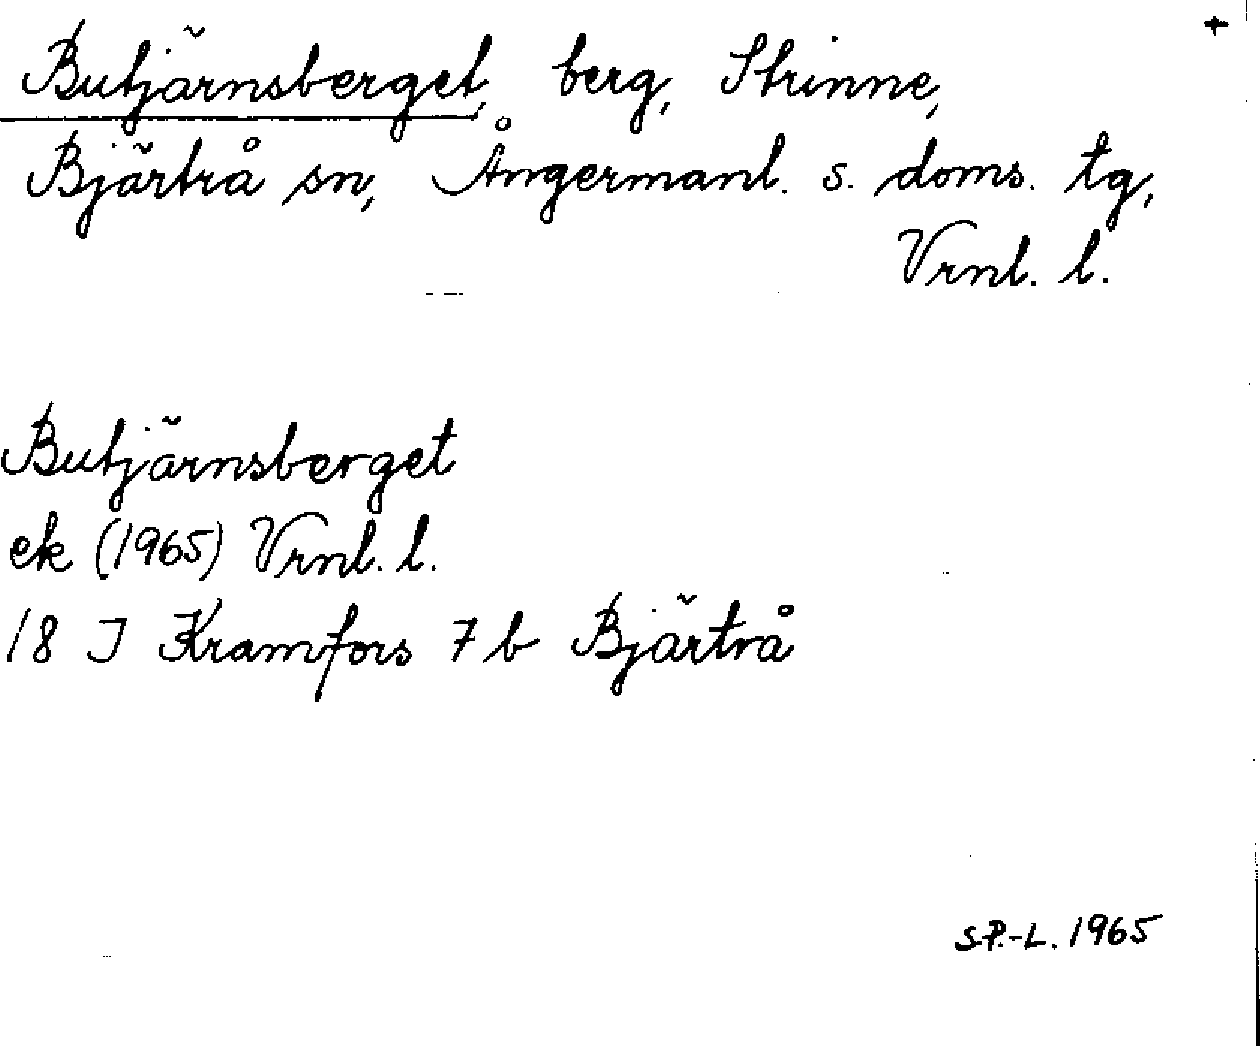 +
Butjärnsberget, berg, Strinne,
Bjärtrå sn, Ångermanl. s. doms. tg,
Vrnl. l.
Butjärnsberget
ek (1965) Vrnl. l.
18 I Kramfors 7 b Bjärtrå
S.P.-L. 1965